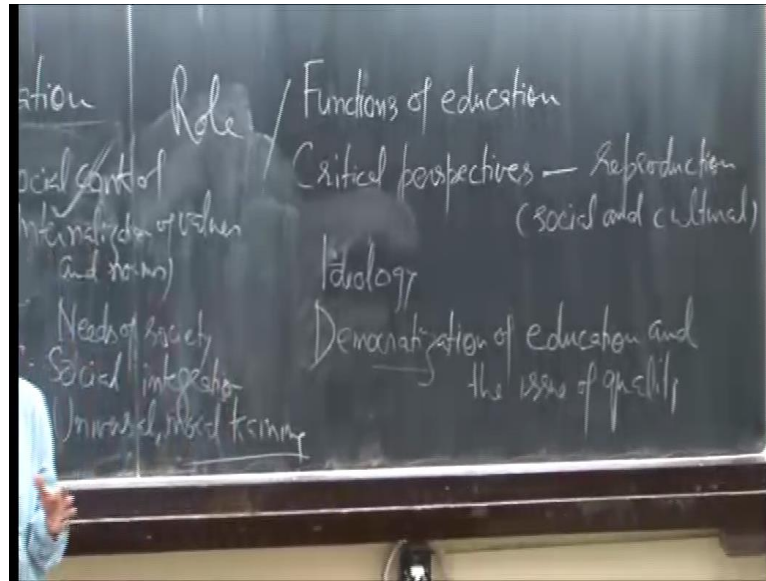 ation
ocial control
nternalization of values
and norms)
Needs of society
Social integration
Universal, moral training
Role / Functions of education
Critical perspectives — Reproduction
(social and cultural)
Ideology
Democratization of education and
the issue of quality